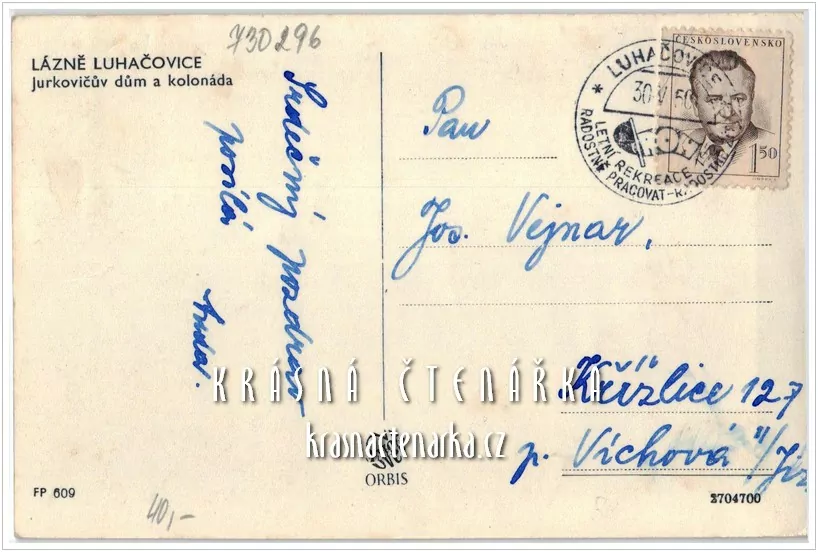 730296
LÁZNĚ LUHAČOVICE
Jurkovičův dům a kolonáda
Srdečný pozdrav
posílá
ČESKOSLOVENSKO
1 50
LUHAČOV
30.V.50
LETNÍ REKREACE
RADOSTNĚ PRACOVAT-RADOSTNĚ
Pan
Jos. Vejnar,
Křížlice 127
p. Víchová n/Jiz
KRÁSNÁ ČTENÁŘKA
krasnactenarka.cz
ORBIS
FP 609
40,-
3704700